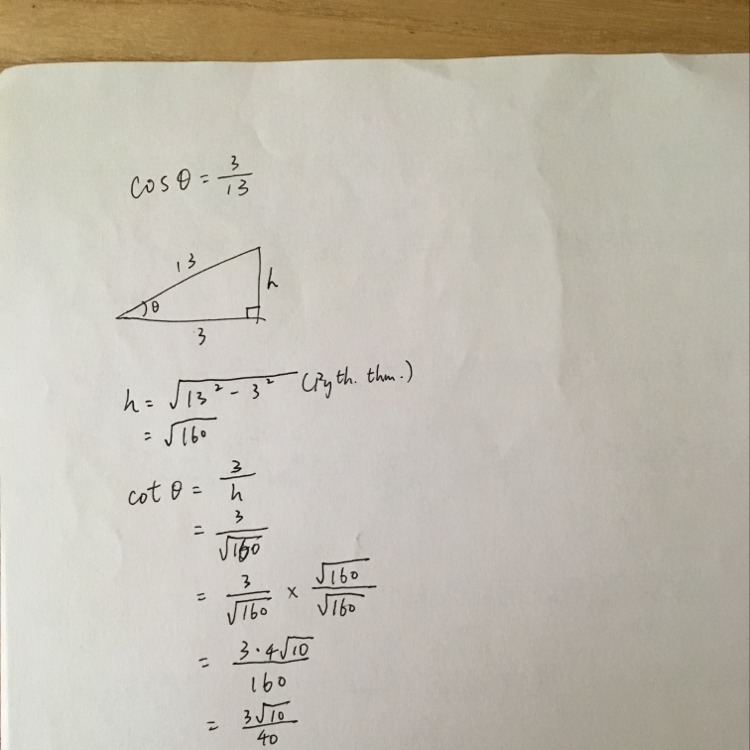 cos θ = 3/13
13
h
θ
3
h = √(13² - 3²) (Pyth. thm.)
= √160
cot θ = 3/h
= 3/√160
= 3/√160 × √160/√160
= 3·4√10/160
= 3√10/40